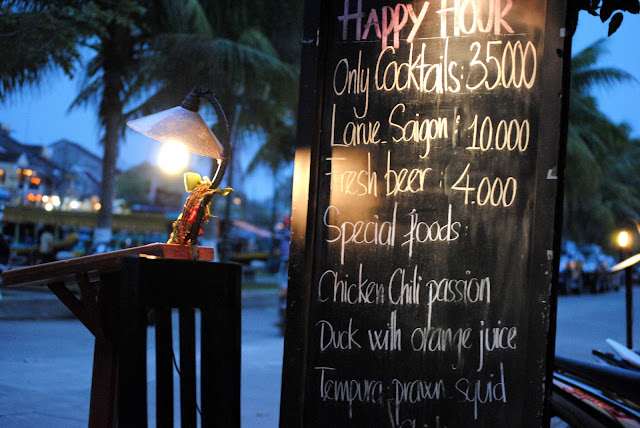 Happy Hour
Only Cocktails: 35000
Larue_Saigon: 10.000
Fresh beer: 4.000
Special foods:
Chicken Chili passion
Duck with orange juice
Tempura_prawn_squid